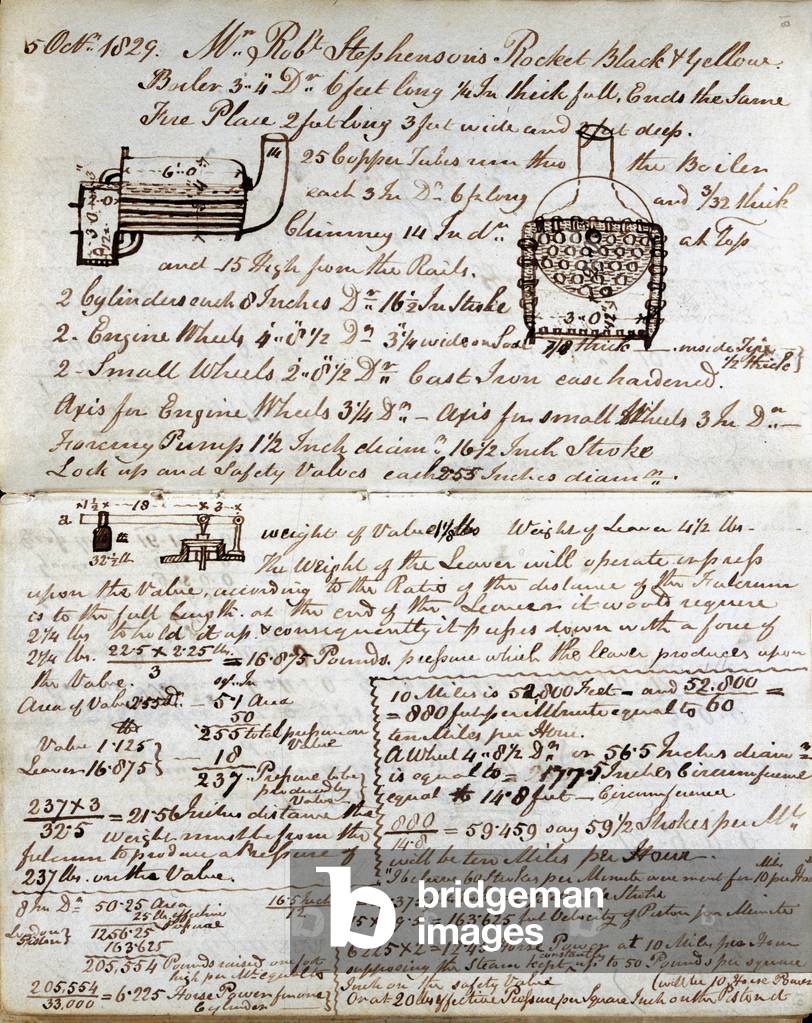 5 Octr. 1829. Mr. Robt. Stephensons Rocket Black & Yellow.
Boiler 3"4 Dr 6 feet long ¼ In thick full, Ends the Same
Fire Place 2 feet long 3 feet wide and 2 feet deep.
25 Copper Tubes run thro the Boiler
each 3 In Dr 6 ft long and 3/32 thick
Chimney 14 In dr. at Top
and 15 High from the Rails.
14
6"0
3"4
2"0
3"0
3"0
2 Cylinders each 8 Inches Dr. 16½ In Stroke
2. Engine Wheels 4"8½ Dr 3¼ wide on Sole 7/8 thick inside Tire ½ thick
2 Small Wheels 2"8½ Dr. Cast Iron case hardened.
Axis for Engine Wheels 3¼ Dr — Axis for small Wheels 3 In Dr —
Forcing Pump 1½ Inch diamr. 16½ Inch Stroke
Lock up and Safety Valves each 2.55 Inches diamr.
1½ 18 3
a
32½ lb
weight of Valve 1⅛ lbs Weight of Leaver 4½ lbs -
The Weight of the Leaver will operate in press
upon the Valve, according to the Ratio of the distance of the Fulcrum
is to the full length. at the end of the Leaver it would require
2¼ lbs to hold it up & consequently it presses down with a force of
2¼ lbs. 22.5 x 2.25 lbs. / 3 = 16.875 Pounds. pressure which the leaver produces upon
the Valve.
Area of Valve 2.55 Dr. — 5.1 Area
50
255 total pressure on Valve
Valve 1.125
Leaver 16.875 } — 18
237 Pressure to be produced by Valve
237 x 3 / 32.5 = 21.56 Inches distance the
weight must be from the
fulcrum to produce a Pressure of
237 lbs. on the Valve.
10 Miles is 52800 Feet — and 52.800 / 60 =
= 880 feet per Minute equal to
ten Miles per Hour.
A Wheel 4"8½ Dr or 56.5 Inches diamr
is equal to = 177.5 Inches Circumference
equal to 14.8 feet — Circumference
880 / 14.8 = 59.459 say 59½ Strokes per Mt.
will be ten Miles per Hour.
8 In Dr 50.25 Area
25 lbs effective Pressure
1256.25
163.625
205,554 Pounds raised one foot
high per Mt. equal to
205,554 / 33,000 = 6.225 Horse Power for one
Cylinder
16.5 Inch
12
= 163.625 feet Velocity of Piston per Minute
6.225 x 2 = 12.45 Horse Power at 10 Miles per Hour
supposing the Steam kept constantly up to 50 Pounds per square
Inch on the safety Valve (will be 10 Horse Power
Or at 20 lbs effective Pressure per Square Inch on the Piston it
bridgeman
images